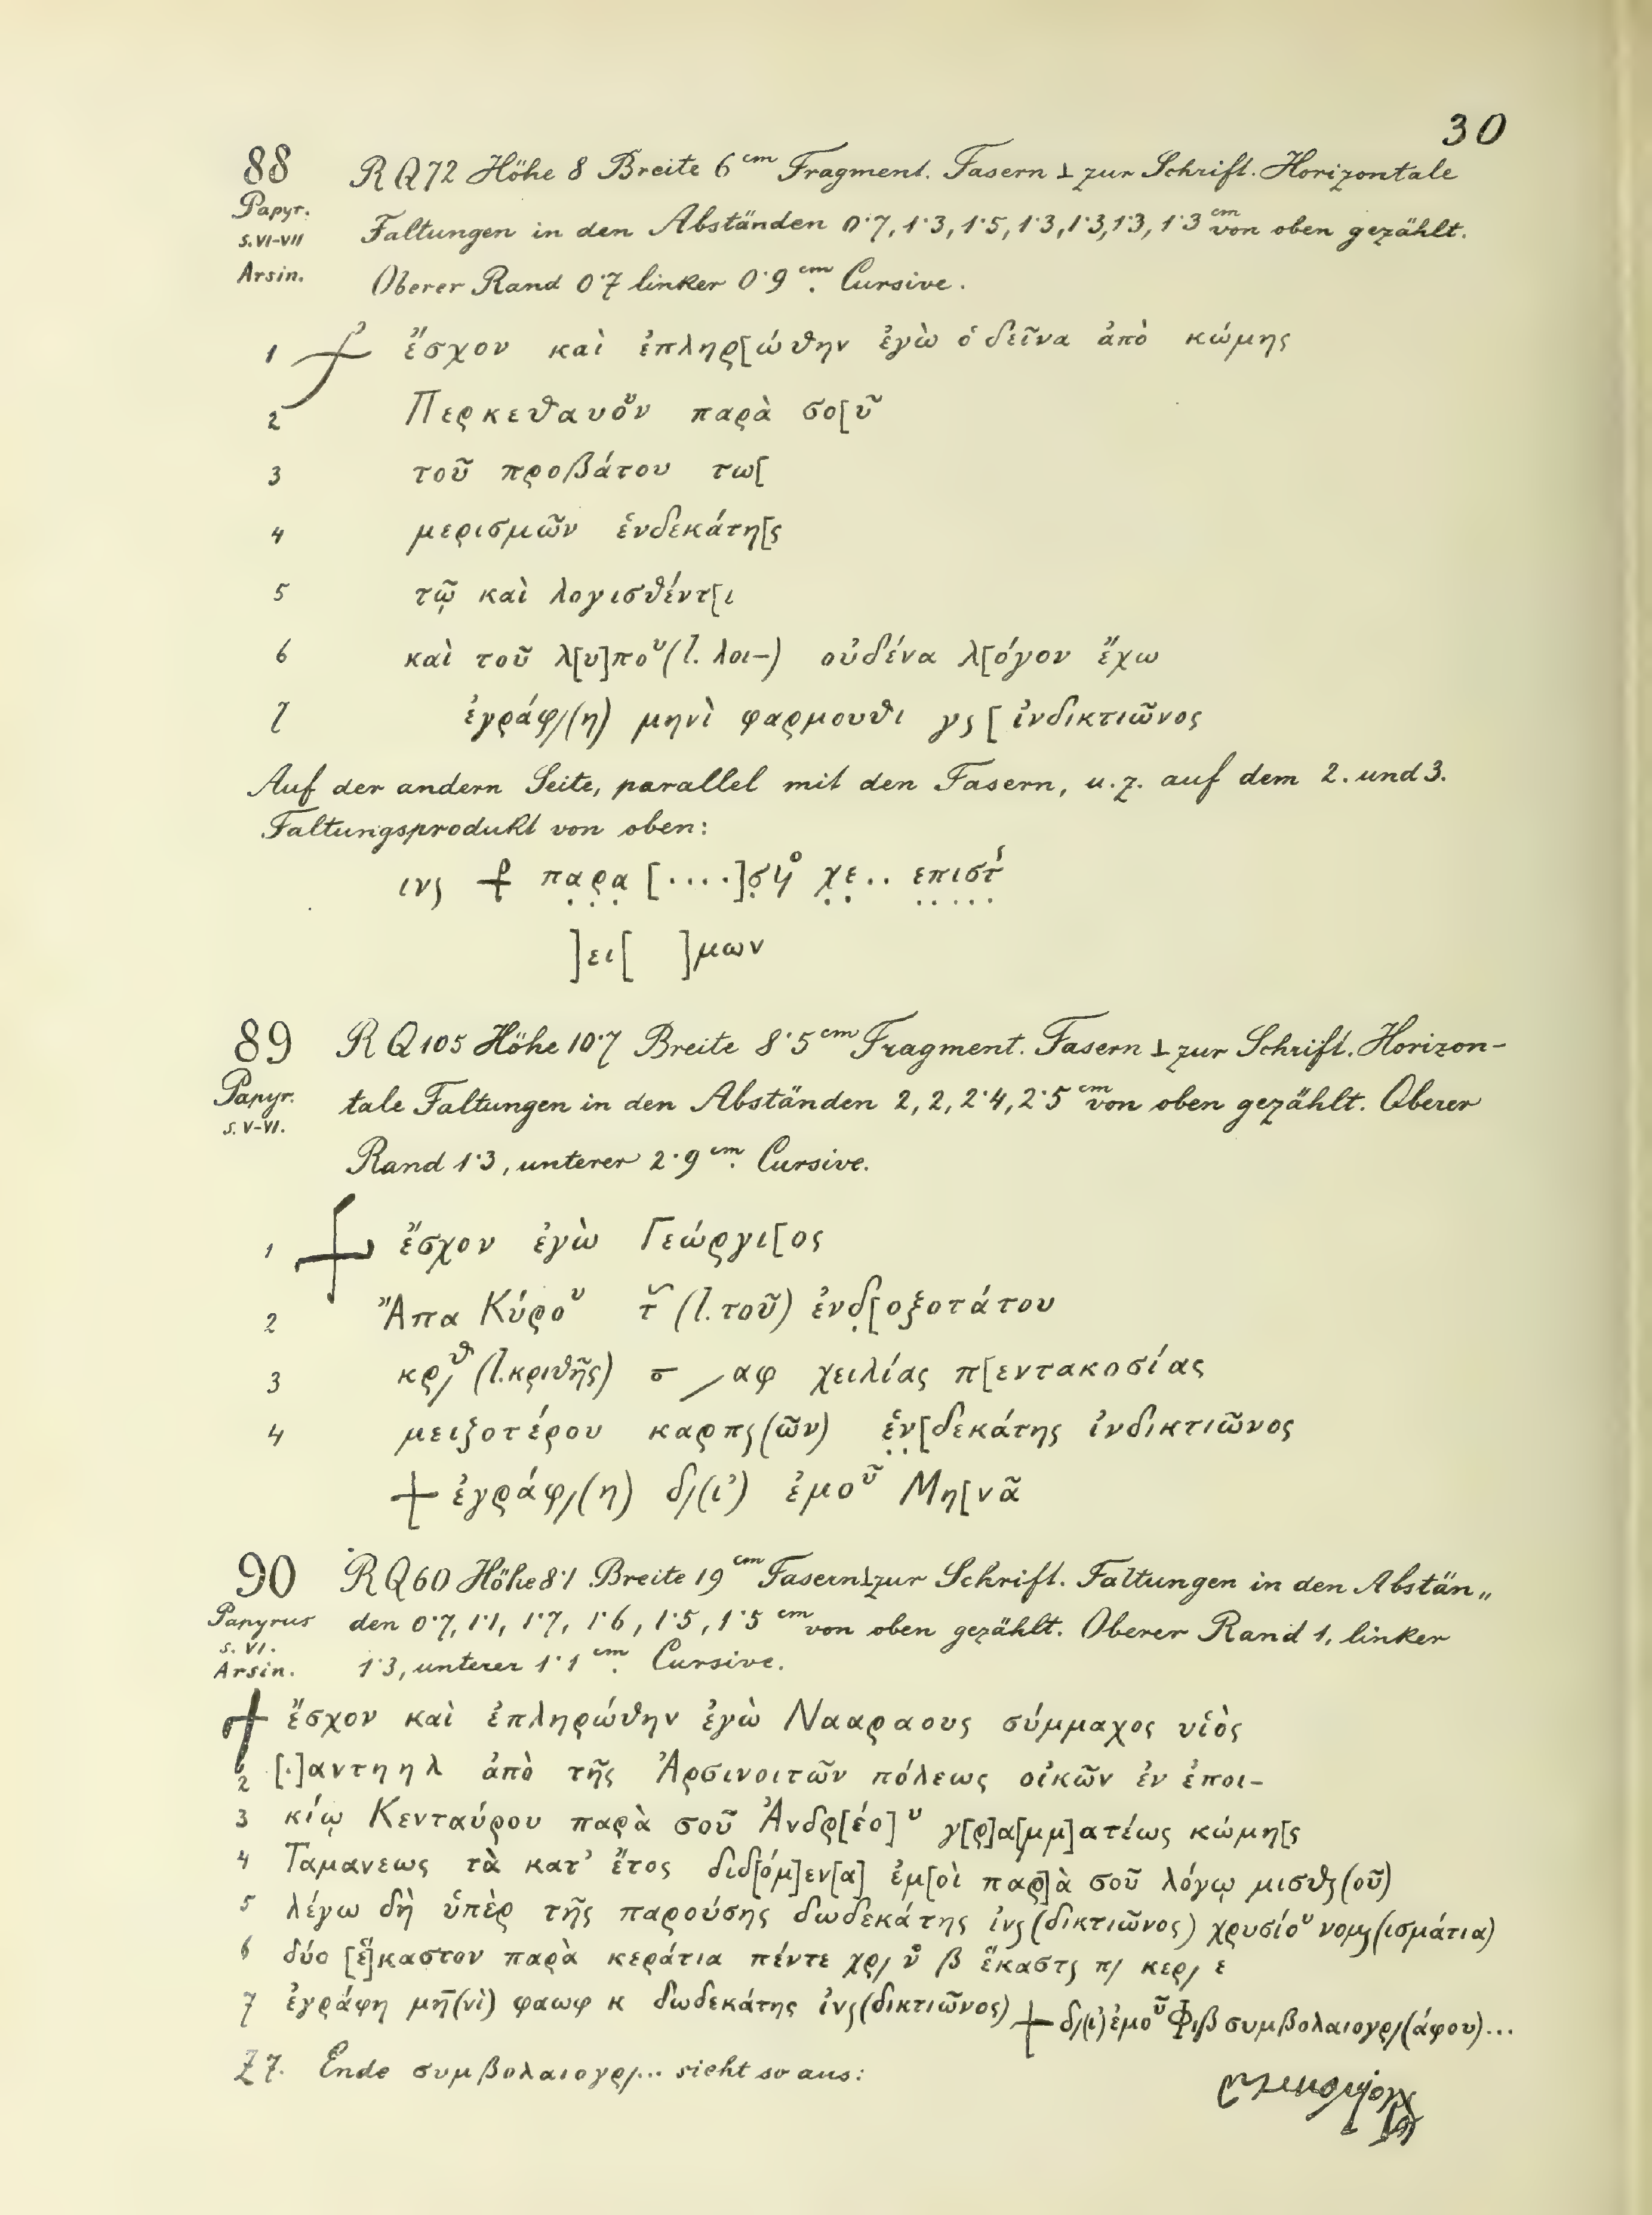 30
88 R Q 72 Höhe 8 Breite 6 cm Fragment. Fasern ⊥ zur Schrift. Horizontale
Papyr. Faltungen in den Abständen 0·7, 1·3, 1·5, 1·3, 1·3, 1·3, 1·3 cm von oben gezählt.
s. VI-VII
Arsin. Oberer Rand 0·7 linker 0·9 cm. Cursive.
1 ⳨ ἔσχον καὶ ἐπληρ[ώθην ἐγὼ ὁ δεῖνα ἀπὸ κώμης
2 Περκεθαυὸν παρὰ σο[ῦ
3 τοῦ προβάτου τω[
4 μερισμῶν ἑνδεκάτη[ς
5 τῷ καὶ λογισθέντ[ι
6 καὶ τοῦ λ[υ]ποʋ (l. λοι-) οὐδένα λ[όγον ἔχω
7 ἐγράφ/(η) μηνὶ φαρμουθι γς [ ἰνδικτιῶνος
Auf der andern Seite, parallel mit den Fasern, u. z. auf dem 2. und 3.
Faltungsprodukt von oben:
ινς ⳨ παρα [....] χε.. επιστ
]ει[ ]μων
89 R Q 105 Höhe 10·7 Breite 8·5 cm Fragment. Fasern ⊥ zur Schrift. Horizon-
Papyr. tale Faltungen in den Abständen 2, 2, 2·4, 2·5 cm von oben gezählt. Oberer
s. V-VI.
Rand 1·3, unterer 2·9 cm. Cursive.
1 + ἔσχον ἐγὼ Γεώργι[ος
2 Ἄπα Κύροʋ τ (l. τοῦ) ἐνδ[οξοτάτου
3 κρθ/ (l. κριθῆς) σ / αφ χειλίας π[εντακοσίας
4 μειζοτέρου καρπς(ῶν) ἑν[δεκάτης ἰνδικτιῶνος
+ ἐγράφ/(η) δ/(ι’) ἐμοῦ Μη[νᾶ
90 R Q 60 Höhe 8·1 Breite 19 cm Fasern ⊥ zur Schrift. Faltungen in den Abstän„
Papyrus den 0·7, 1·1, 1·7, 1·6, 1·5, 1·5 cm von oben gezählt. Oberer Rand 1, linker
s. VI.
Arsin. 1·3, unterer 1·1 cm. Cursive.
⳨ ἔσχον καὶ ἐπληρώθην ἐγὼ Νααραους σύμμαχος υἱὸς
2 [.]αντηηλ ἀπὸ τῆς Ἀρσινοιτῶν πόλεως οἰκῶν ἐν ἐποι-
3 κίῳ Κενταύρου παρὰ σοῦ Ἀνδρ[έο]υ γ[ρ]α[μμ]ατέως κώμη[ς
4 Ταμανεως τὰ κατ’ ἔτος διδ[όμ]εν[α] ἐμ[οὶ παρ]ὰ σοῦ λόγῳ μισθς(οῦ)
5 λέγω δὴ ὑπὲρ τῆς παρούσης δωδεκάτης ἰνς(δικτιῶνος) χρυσίου νομς(ισμάτια)
6 δύο [ἕ]καστον παρὰ κεράτια πέντε χρ/ ν̊ β ἕκαστς π/ κερ/ ε
7 ἐγράφη μη(νὶ) φαωφ κ δωδεκάτης ἰνς(δικτιῶνος) + δ/(ι’) ἐμοῦ Φιβ συμβολαιογρ/(άφου)...
Z 7. Ende συμβολαιογρ/... sieht so aus: